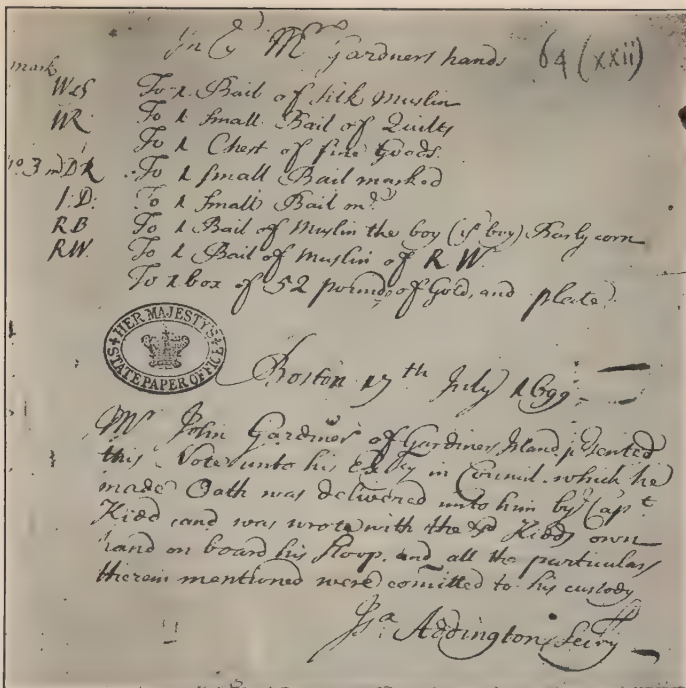 In Mr Gardners hands 64 (xxii)
mark
W&S To 1 Bail of Silk Muslin
WR To 1 Small Bail of Quilts
To 1 Chest of fine Goods.
DR To 1 Small Bail marked
I:D: To 1 Small Bail
RB To 1 Bail of Muslin the boy (ye boy) Barlycorn
RW. To 1 Bail of Muslin of R W.
To 1 box of 52 pounds of Gold, and plate.
HER MAJESTY'S
STATE PAPER OFFICE
Boston 17th July 1699
Mr John Gardiner of Gardiners Island presented
this Note unto his Excy in Council. which he
made Oath was delivered unto him by Capt
Kidd and was wrote with the sd Kidds own
hand on board his Sloop. and all the particulars
therein mentioned were comitted to his custody
Jsa Addington Secry